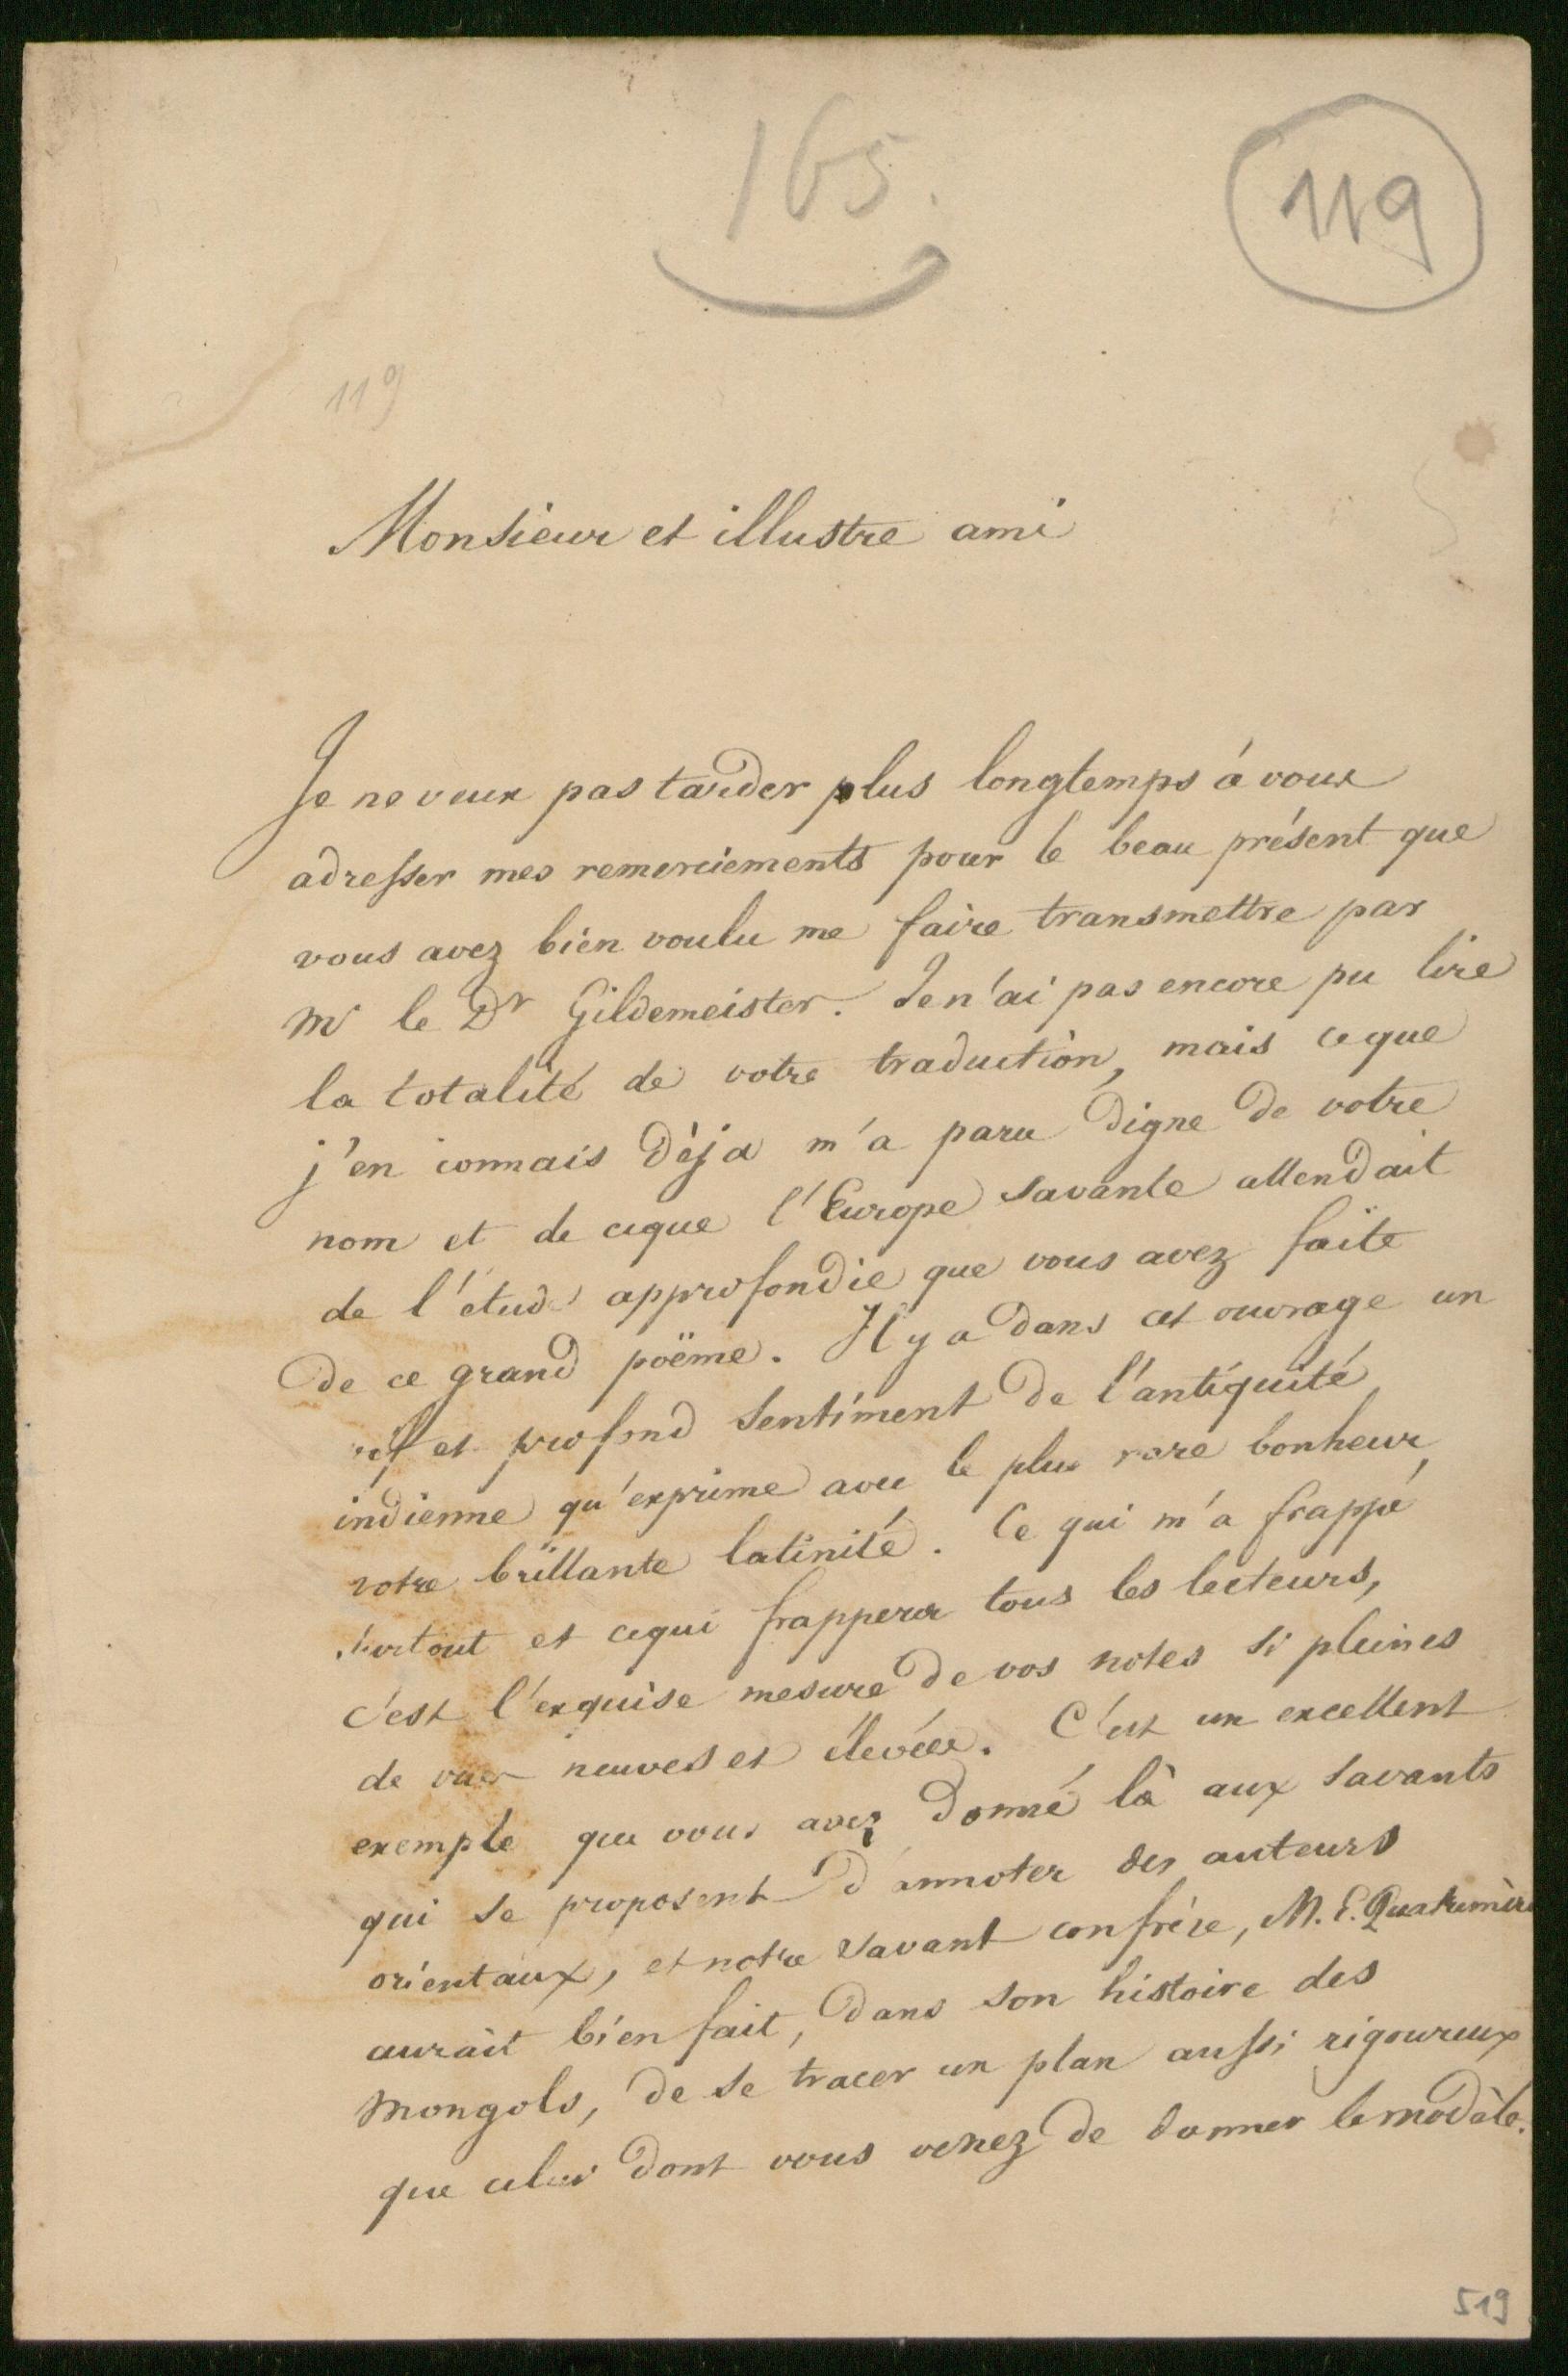 165.
119
119
Monsieur et illustre ami
Je ne veux pas tarder plus longtemps à vous
adresser mes remerciements pour le beau présent que
vous avez bien voulu me faire transmettre par
Mr le Dr Gildemeister. Je n'ai pas encore pu lire
la totalité de votre traduction, mais ce que
j'en connais déja m'a paru digne de votre
nom et de ce que l'Europe savante attendait
de l'étude approfondie que vous avez faite
de ce grand poëme. Il y a dans cet ouvrage un
vif et profond sentiment de l'antiquité
indienne qu'exprime avec le plus rare bonheur,
votre brillante latinité. Ce qui m'a frappé
surtout et ce qui frappera tous les lecteurs,
c'est l'exquise mesure de vos notes si pleines
de vues neuves et élevées. C'est un excellent
exemple que vous avez donné là aux savants
qui se proposent d'annoter des auteurs
orientaux, et notre savant confrère, M. E. Quatremère
aurait bien fait, dans son histoire des
Mongols, de se tracer un plan aussi rigoureux
que celui dont vous venez de donner le modèle.
519